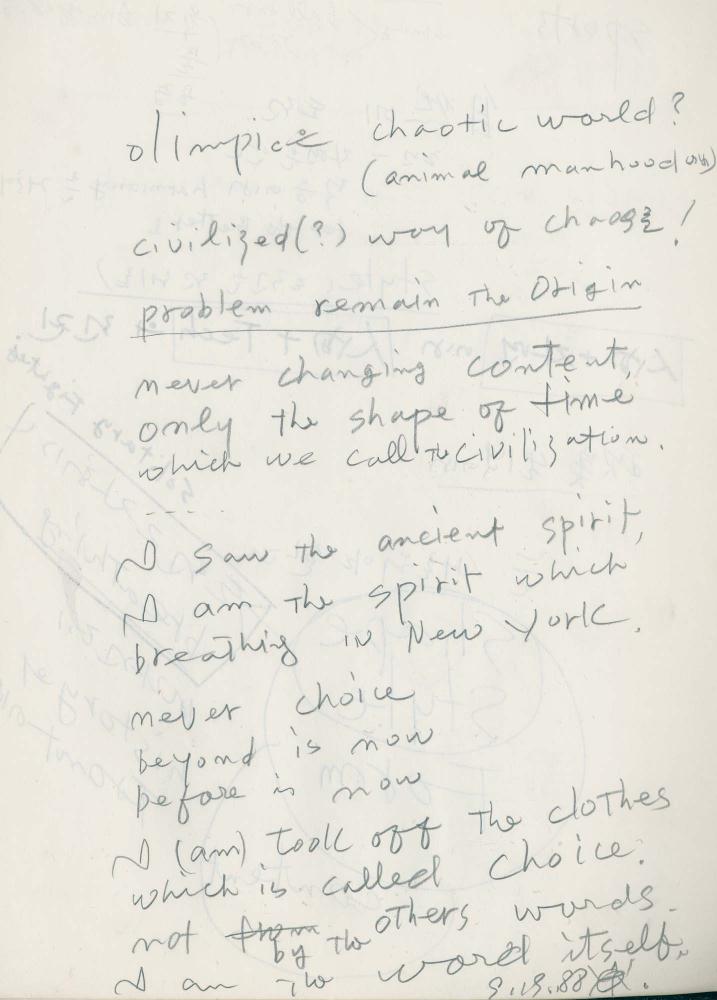 olimpic chaotic world?
(animal manhood
civilized(?) way of chaos!
problem remain the Origin
never changing content,
only the shape of time
which we call the civilization.
-----
I saw the ancient spirit,
I am the spirit which
breathing in New York.
never choice
beyond is now
before is now
I (am) took off the clothes
which is called choice.
not from by the others words.
I am the word itself.
9.19.88